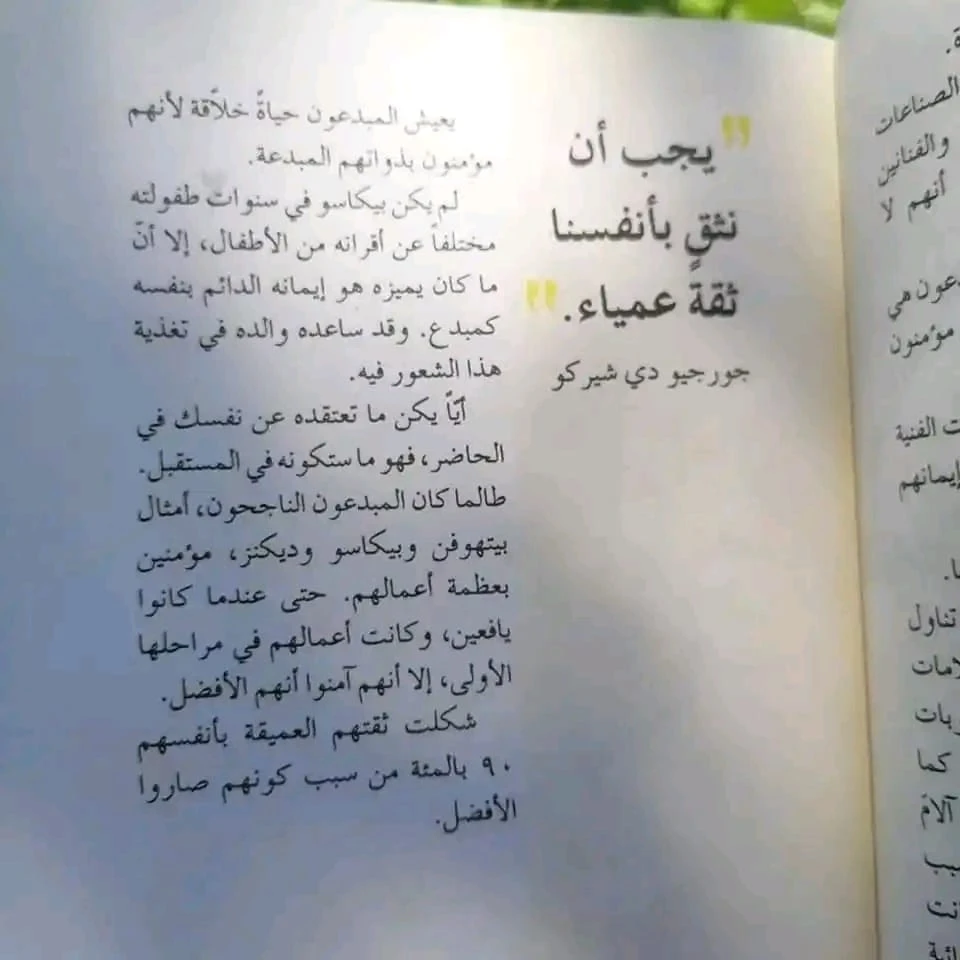 "يجب أن
نثقٍ بأنفسنا
ثقةً عمياء."
جورجيو دي شيركو
يعيش المبدعون حياةً خلاّقة لأنهم
مؤمنون بذواتهم المبدعة.
لم يكن بيكاسو في سنوات طفولته
مختلفاً عن أقرانه من الأطفال، إلا أنّ
ما كان يميزه هو إيمانه الدائم بنفسه
كمبدع. وقد ساعده والده في تغذية
هذا الشعور فيه.
أيّاً يكن ما تعتقده عن نفسك في
الحاضر، فهو ما ستكونه في المستقبل.
طالما كان المبدعون الناجحون، أمثال
بيتهوفن وبيكاسو وديكنز، مؤمنين
بعظمة أعمالهم. حتى عندما كانوا
يافعين، وكانت أعمالهم في مراحلها
الأولى، إلا أنهم آمنوا أنهم الأفضل.
شكلت ثقتهم العميقة بأنفسهم
٩٠ بالمئة من سبب كونهم صاروا
الأفضل.
الصناعات
والفنانين
أنهم لا
هي
مؤمنون
الفنية
إيمانهم
تناول
كما
آلام